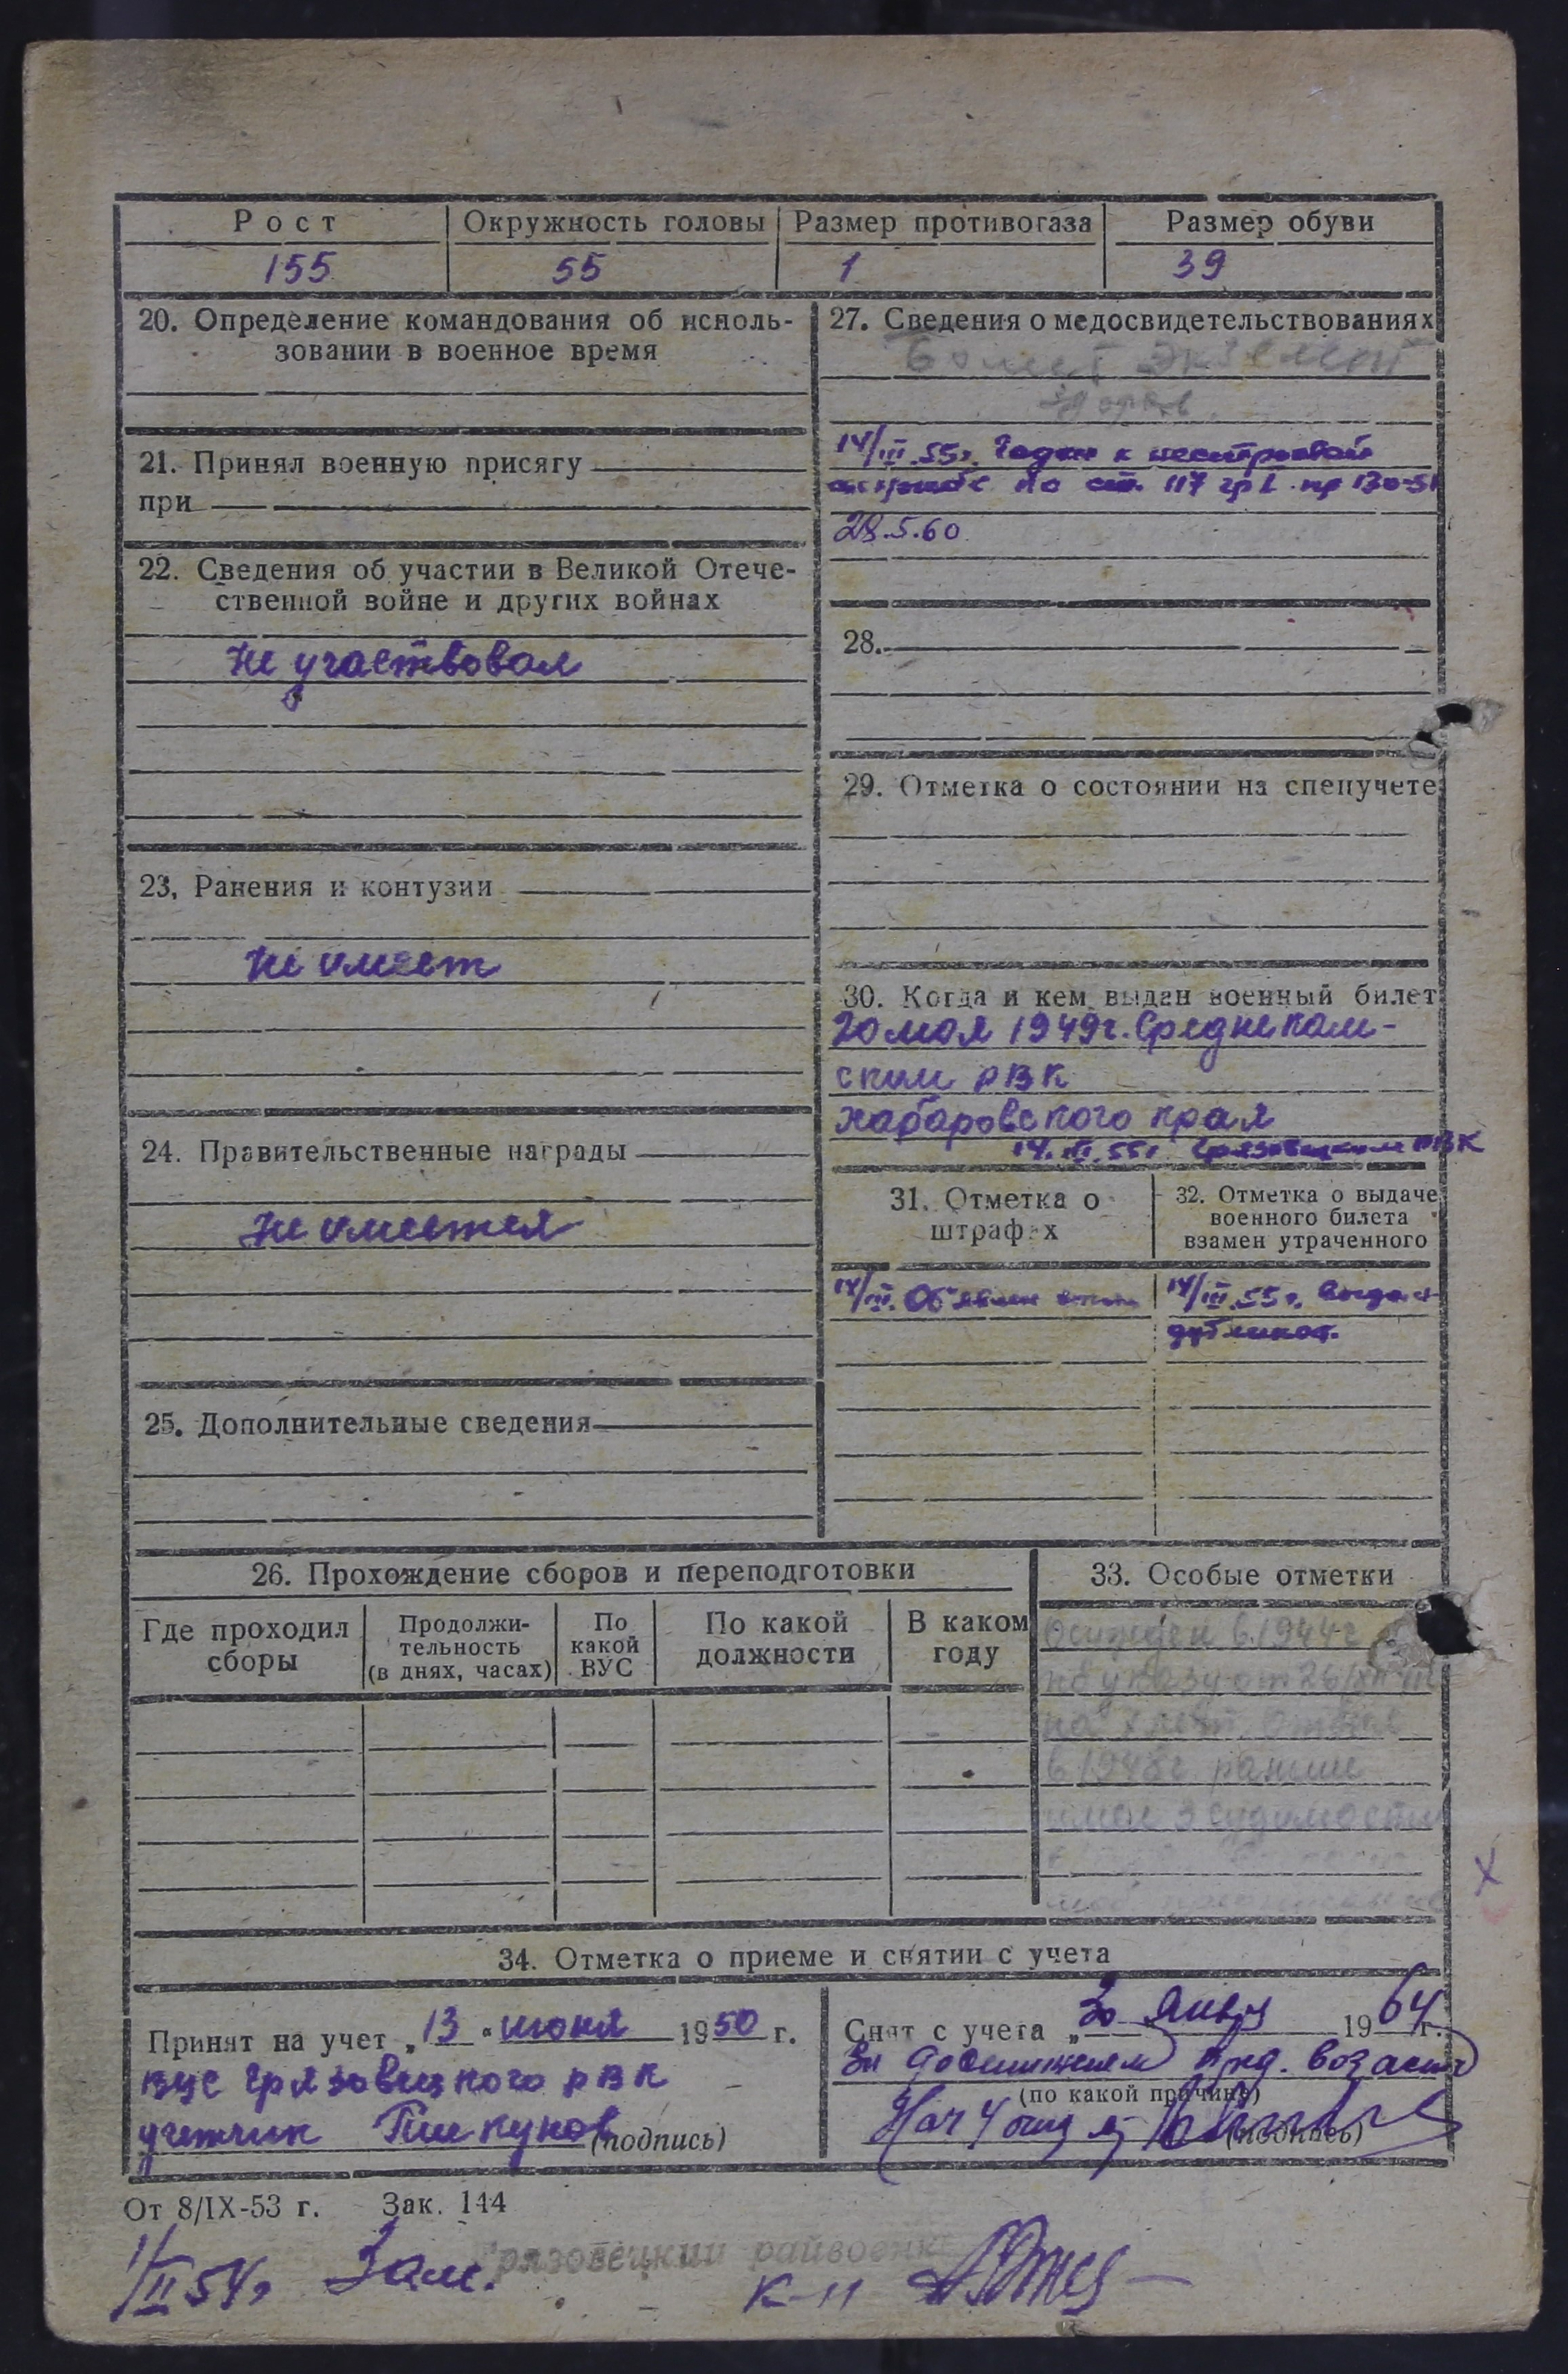 Рост Окружность головы Размер противогаза Размер обуви
155 55 1 39
20. Определение командования об исполь-
зовании в военное время
21. Принял военную присягу
при
22. Сведения об участии в Великой Отече-
ственной войне и других войнах
не участвовал
23. Ранения и контузии
не имеет
24. Правительственные награды
не имеется
25. Дополнительные сведения
27. Сведения о медосвидетельствованиях
Болеет экземой
здоров
14/III.55г. Годен к нестроевой
службе по ст. 117 гр 1 пр 130-51
28.5.60
28.
29. Отметка о состоянии на спецучете
30. Когда и кем выдан военный билет
20 мая 1949г. Среднекам-
ским РВК
Хабаровского края
14.III.55г. Грязовецким РВК
31. Отметка о
штрафах
14/III. Объявлен
32. Отметка о выдаче
военного билета
взамен утраченного
14/III.55г. Выдан
дубликат.
26. Прохождение сборов и переподготовки
Где проходил
сборы
Продолжи-
тельность
(в днях, часах)
По
какой
ВУС
По какой
должности
В каком
году
33. Особые отметки
Осужден в 1944г
по указу от 26/
на лет. отбыл
в 1948г. раньше
имел 3 судимости
34. Отметка о приеме и снятии с учета
Принят на учет „13" июня 1950 г.
ВУС Грязовецкого РВК
учетчик
(подпись)
Снят с учета „30 январ 1964 г.
за достижением пред. возраста
(по какой причине)
Нач 4 отд
(подпись)
От 8/IX-53 г. Зак. 144
1/II 54г Зам. Грязовецкий райвоенк
К-н